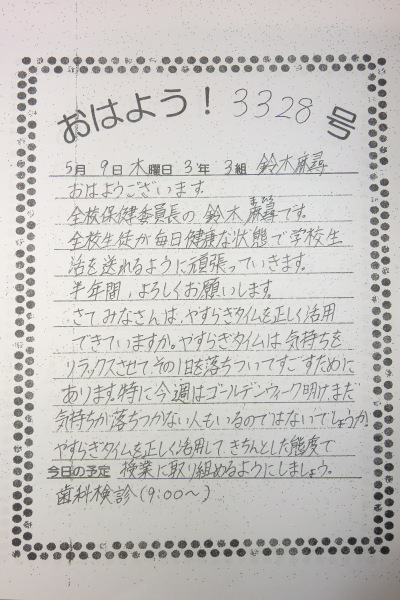 おはよう！3328号
5月 9日 木曜日 3年 3組 鈴木麻尋
おはようございます。
全校保健委員長の 鈴木 麻尋です。
全校生徒が毎日健康な状態で学校生
活を送れるように頑張っていきます。
半年間、よろしくお願いします。
さて、みなさんは、やすらぎタイムを正しく活用
できていますか。やすらぎタイムは気持ちを
リラックスさせてその1日を落ちついてすごすために
あります。特に今週はゴールデンウィーク明けまだ
気持ちが落ちつかない人もいるのではないでしょうか。
やすらぎタイムを正しく活用して、きちんとした態度で
今日の予定 授業に取り組めるようにしましょう。
歯科検診(9:00〜)